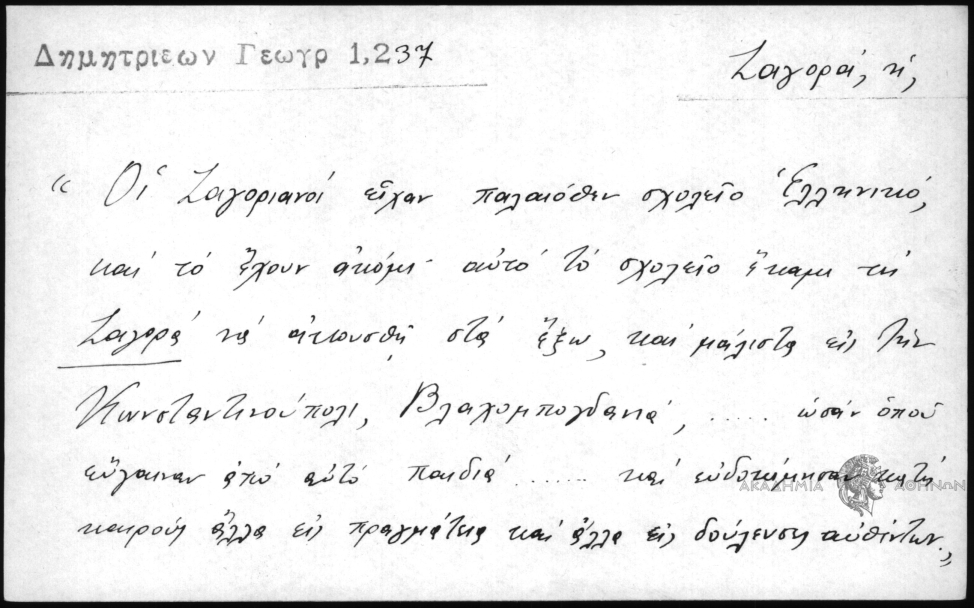 Δημητριεων Γεωγρ 1,237
Ζαγορά, ἡ,
“ Οἱ Ζαγοριανοί εἶχαν παλαιόθεν σχολεῖο Ἑλληνικό,
καί τό ἔχουν ἀκόμι· αὐτό τό σχολεῖο ἔκαμε τή
Ζαγορά νά ἀκουσθῇ στά ἔξω, καί μάλιστα εἰς τήν
Κωνσταντινούπολι, Βλαχομπογδανιά, ..... ὡσάν ὁποῦ
εὔγαιναν ἀπό αὐτό παιδιά ...... καί εὐδοκίμησαν κατά
καιρούς ἄλλα εἰς πραγμάτεια καί ἄλλα εἰς δούλευσι αὐθέντων.„
ΑΚΑΔΗΜΙΑ ΑΘΗΝΩΝ